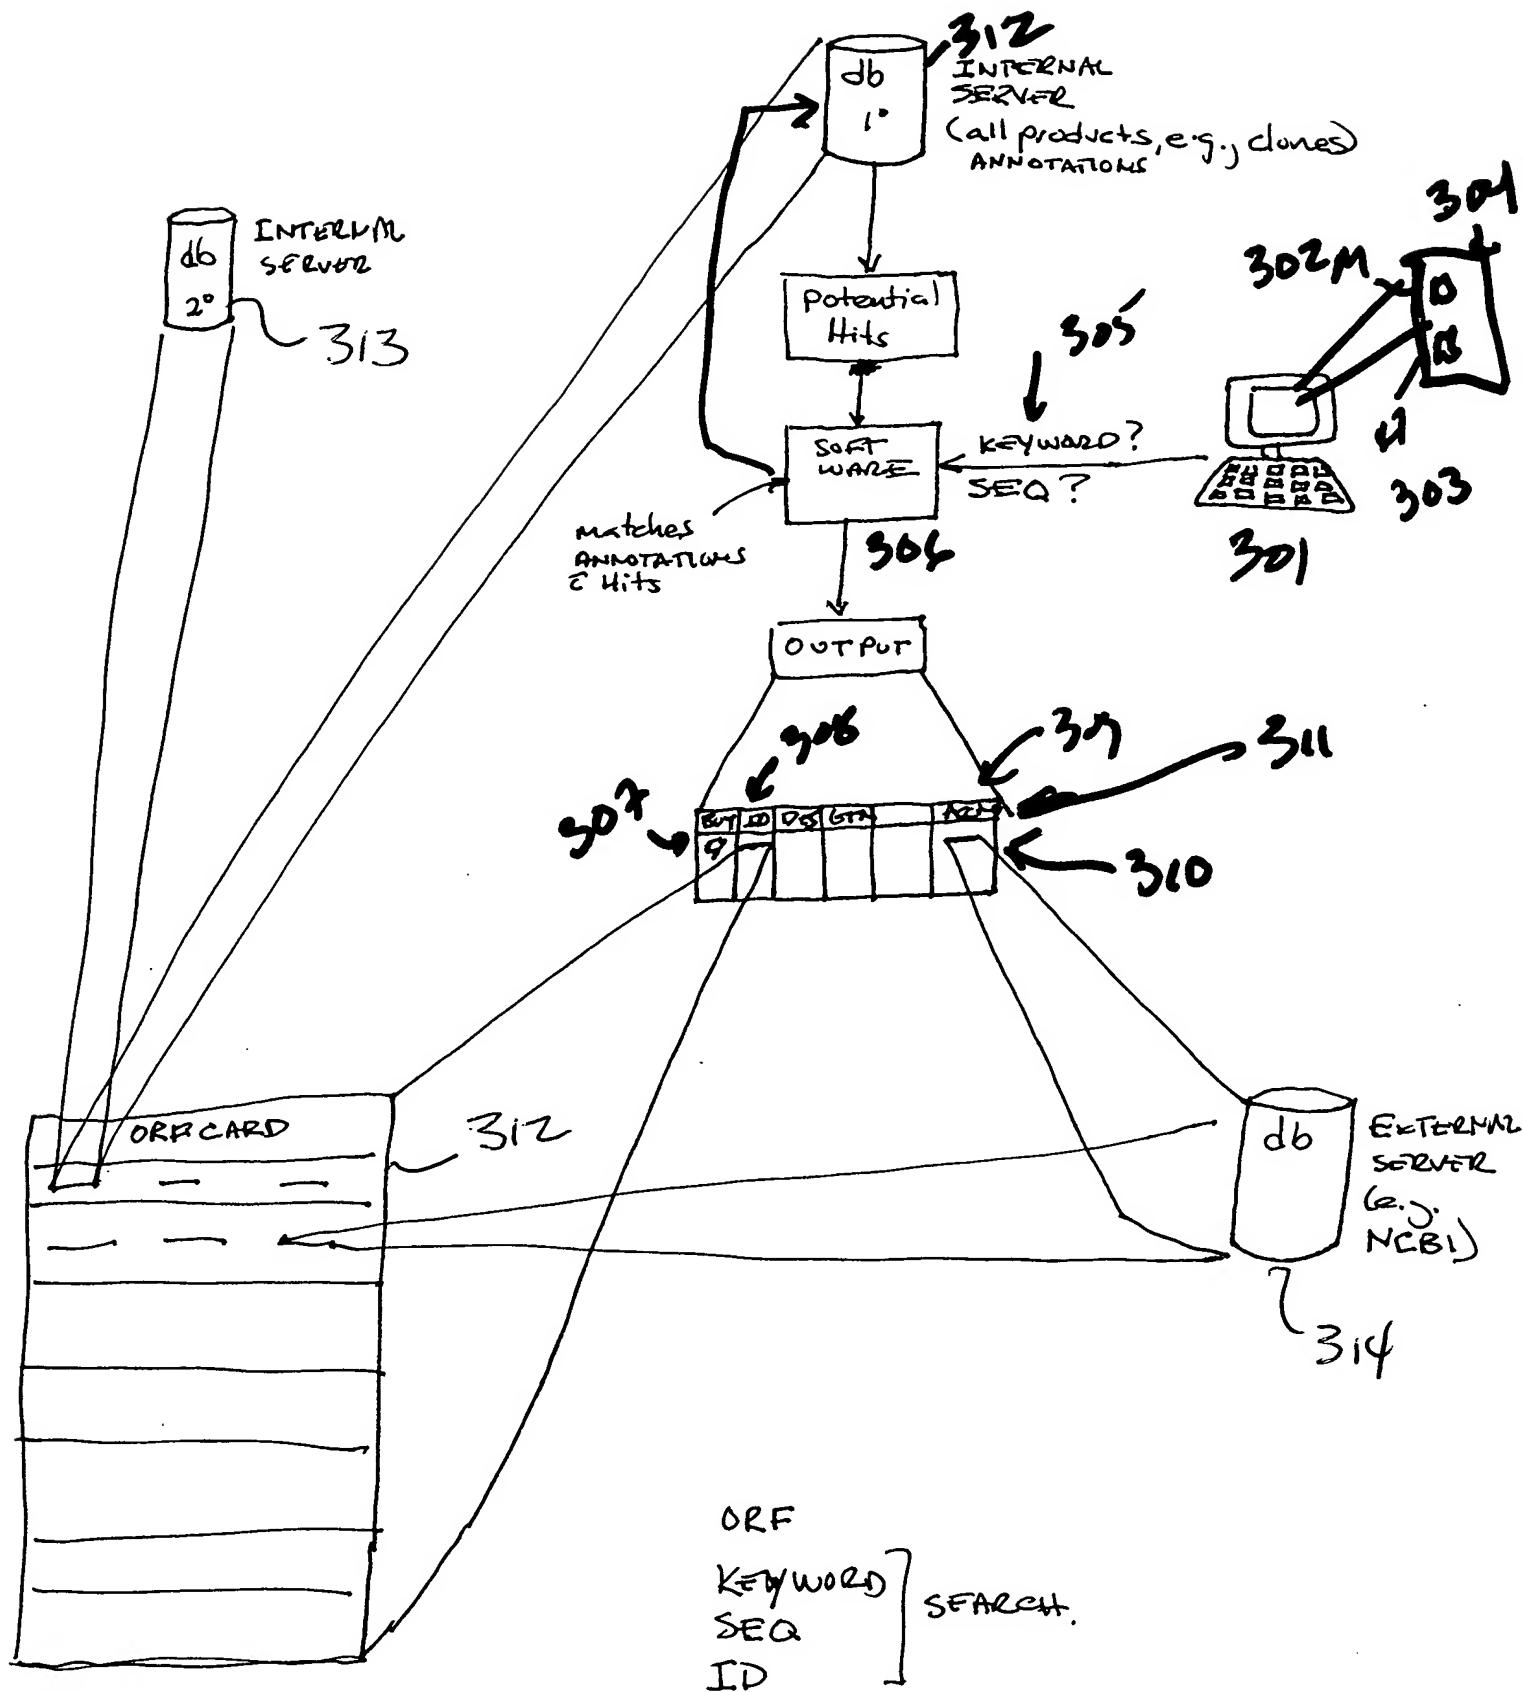 312
db
1°
INTERNAL
SERVER
(all products, e.g., clones)
ANNOTATIONS
304
302M
db
2°
INTERNAL
SERVER
313
Potential
Hits
305
KEYWORD?
SEQ?
SOFT
WARE
303
301
matches
ANNOTATIONS
c̄ Hits
306
OUTPUT
308
309
311
307
BUY ID DES GEN
310
ORF CARD
312
db
EXTERNAL
SERVER
(e.g.
NCBI)
314
ORF
KEYWORD
SEQ
ID
SEARCH.